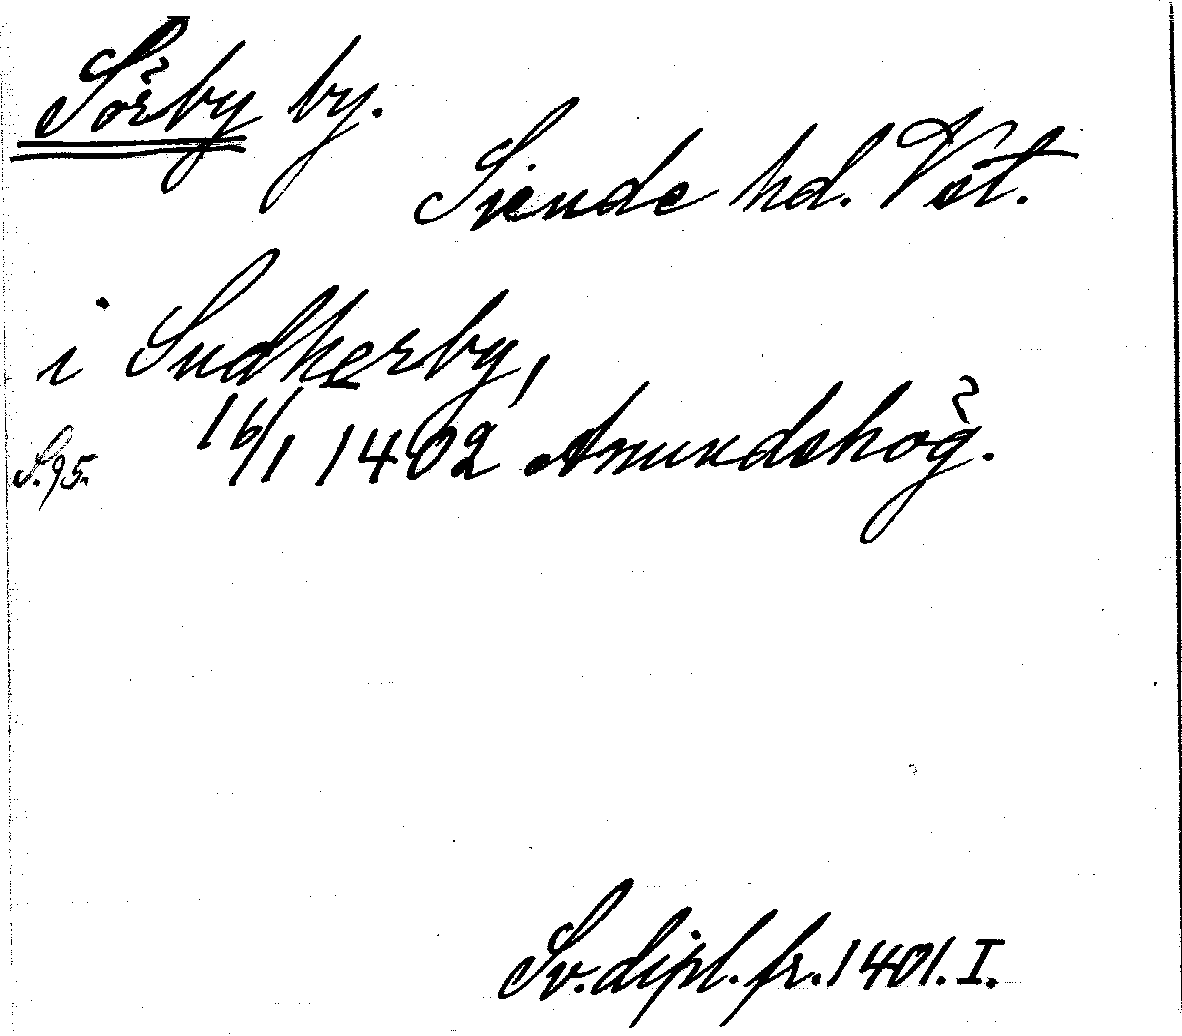 Sörby by.
Siende hd. Vst.
i Sudherby,
S. 95. 16/1 1402 Amundshög.
Sv. dipl. fr. 1401. I.